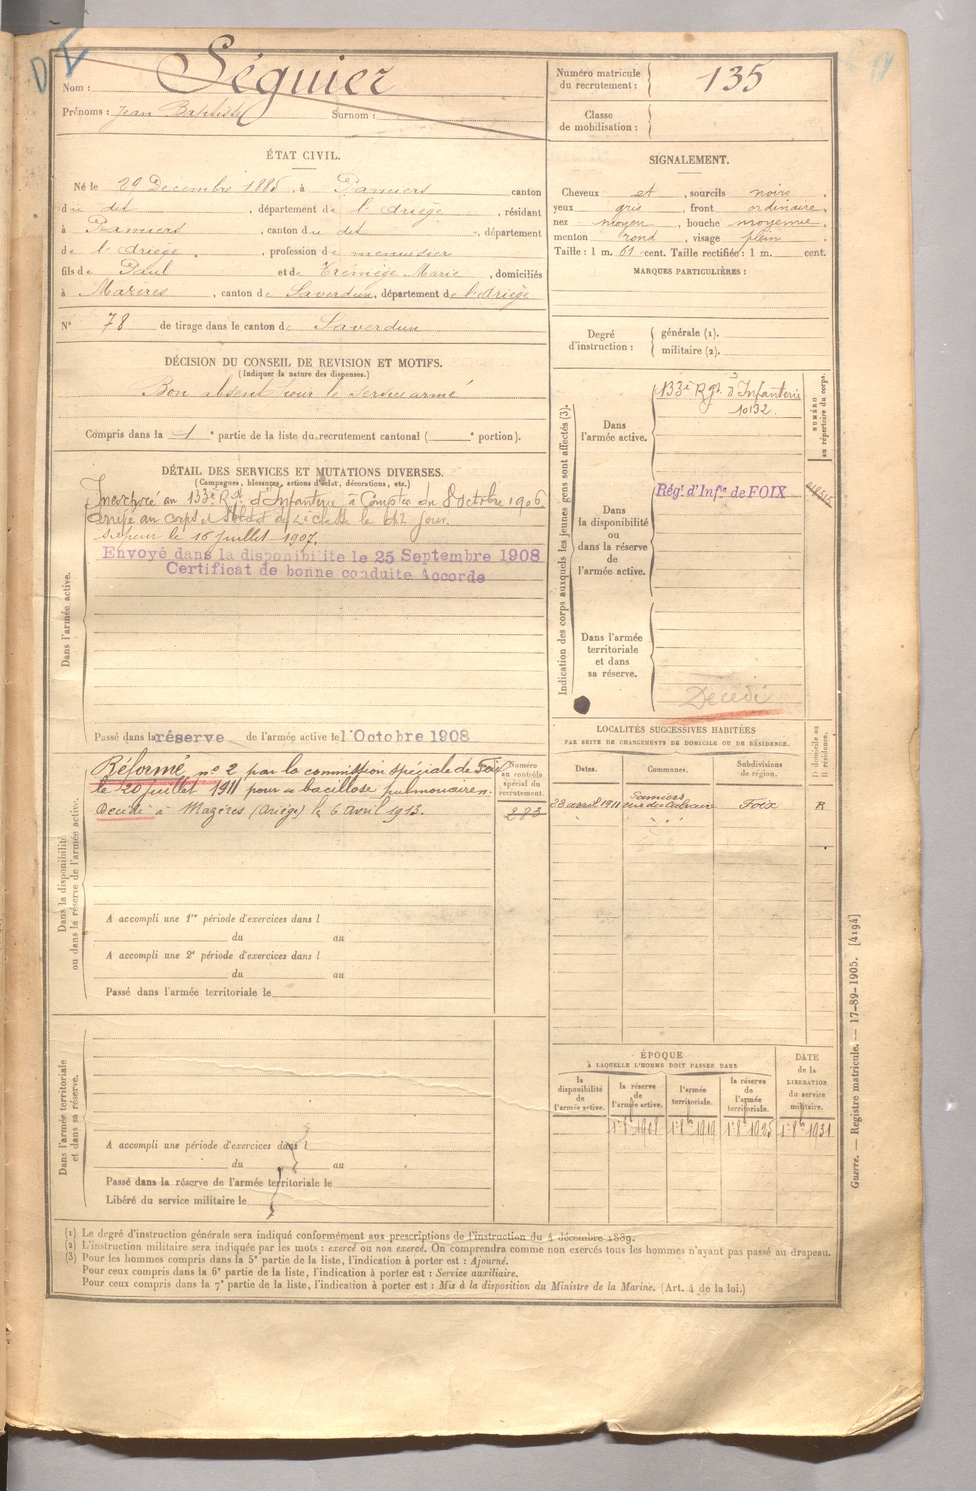 DE
Nom : Séguier
Prénoms : Jean Baptiste Surnom :
Numéro matricule du recrutement : 135
Classe de mobilisation :
ÉTAT CIVIL.
Né le 29 Decembre 1885, à Pamiers canton
du dit, département de l'Ariège, résidant
à Pamiers, canton du dit, département
de l'Ariège, profession de menuisier
fils de Paul et de Trémège Marie, domiciliés
à Mazères, canton de Saverdun, département de l'Ariège
N° 78 de tirage dans le canton de Saverdun
SIGNALEMENT.
Cheveux et, sourcils noirs,
yeux gris, front ordinaire,
nez moyen, bouche moyenne,
menton rond, visage plein
Taille : 1 m. 61 cent. Taille rectifiée : 1 m. cent.
MARQUES PARTICULIÈRES :
Degré d'instruction : générale (1).
militaire (2).
DÉCISION DU CONSEIL DE REVISION ET MOTIFS.
(Indiquer la nature des dispenses.)
Bon absent pour le service armé
Compris dans la 1 e partie de la liste du recrutement cantonal ( e portion).
DÉTAIL DES SERVICES ET MUTATIONS DIVERSES.
(Campagnes, blessures, actions d'éclat, décorations, etc.)
Dans l'armée active.
Incorporé au 133e Rgt d'Infanterie à Compter du 8 octobre 1906.
Arrivé au corps et Soldat de 2e classe le dit jour.
sapeur le 16 juillet 1907.
Envoyé dans la disponibilité le 25 Septembre 1908
Certificat de bonne conduite Accordé
Passé dans la réserve de l'armée active le 1er Octobre 1908
Indication des corps auxquels les jeunes gens sont affectés (3).
NUMÉRO au répertoire du corps.
Dans l'armée active.
133e Rgt d'Infanterie
10132.
Dans la disponibilité ou dans la réserve de l'armée active.
Régt d'Infie de FOIX
Dans l'armée territoriale et dans sa réserve.
Décédé
Dans la disponibilité ou dans la réserve de l'armée active.
Réformé n° 2 par la commission spéciale de Foix
le 20 juillet 1911 pour "bacillose pulmonaire".
Décédé à Mazères (Ariège) le 6 avril 1913.
Numéro au contrôle spécial du recrutement.
283
A accompli une 1re période d'exercices dans l
du au
A accompli une 2e période d'exercices dans l
du au
Passé dans l'armée territoriale le
LOCALITÉS SUCCESSIVES HABITÉES
PAR SUITE DE CHANGEMENTS DE DOMICILE OU DE RÉSIDENCE.
D. domicile ou R. résidence.
Dates. Communes. Subdivisions de région.
28 avril 1911 Pamiers Foix R
Dans l'armée territoriale et dans sa réserve.
A accompli une période d'exercices dans l
du au
Passé dans la réserve de l'armée territoriale le
Libéré du service militaire le
ÉPOQUE
À LAQUELLE L'HOMME DOIT PASSER DANS
la disponibilité de l'armée active.
la réserve de l'armée active.
l'armée territoriale.
la réserve de l'armée territoriale.
DATE de la LIBÉRATION du service militaire.
1er 8bre 1908 1er 8bre 1919 1er 8bre 1925 1er 8bre 1931
(1) Le degré d'instruction générale sera indiqué conformément aux prescriptions de l'instruction du 4 décembre 1889.
(2) L'instruction militaire sera indiquée par les mots : exercé ou non exercé. On comprendra comme non exercés tous les hommes n'ayant pas passé au drapeau.
(3) Pour les hommes compris dans la 5e partie de la liste, l'indication à porter est : Ajourné.
Pour ceux compris dans la 6e partie de la liste, l'indication à porter est : Service auxiliaire.
Pour ceux compris dans la 7e partie de la liste, l'indication à porter est : Mis à la disposition du Ministre de la Marine. (Art. 4 de la loi.)
Guerre. — Registre matricule. — 17-89-1905. [4194]